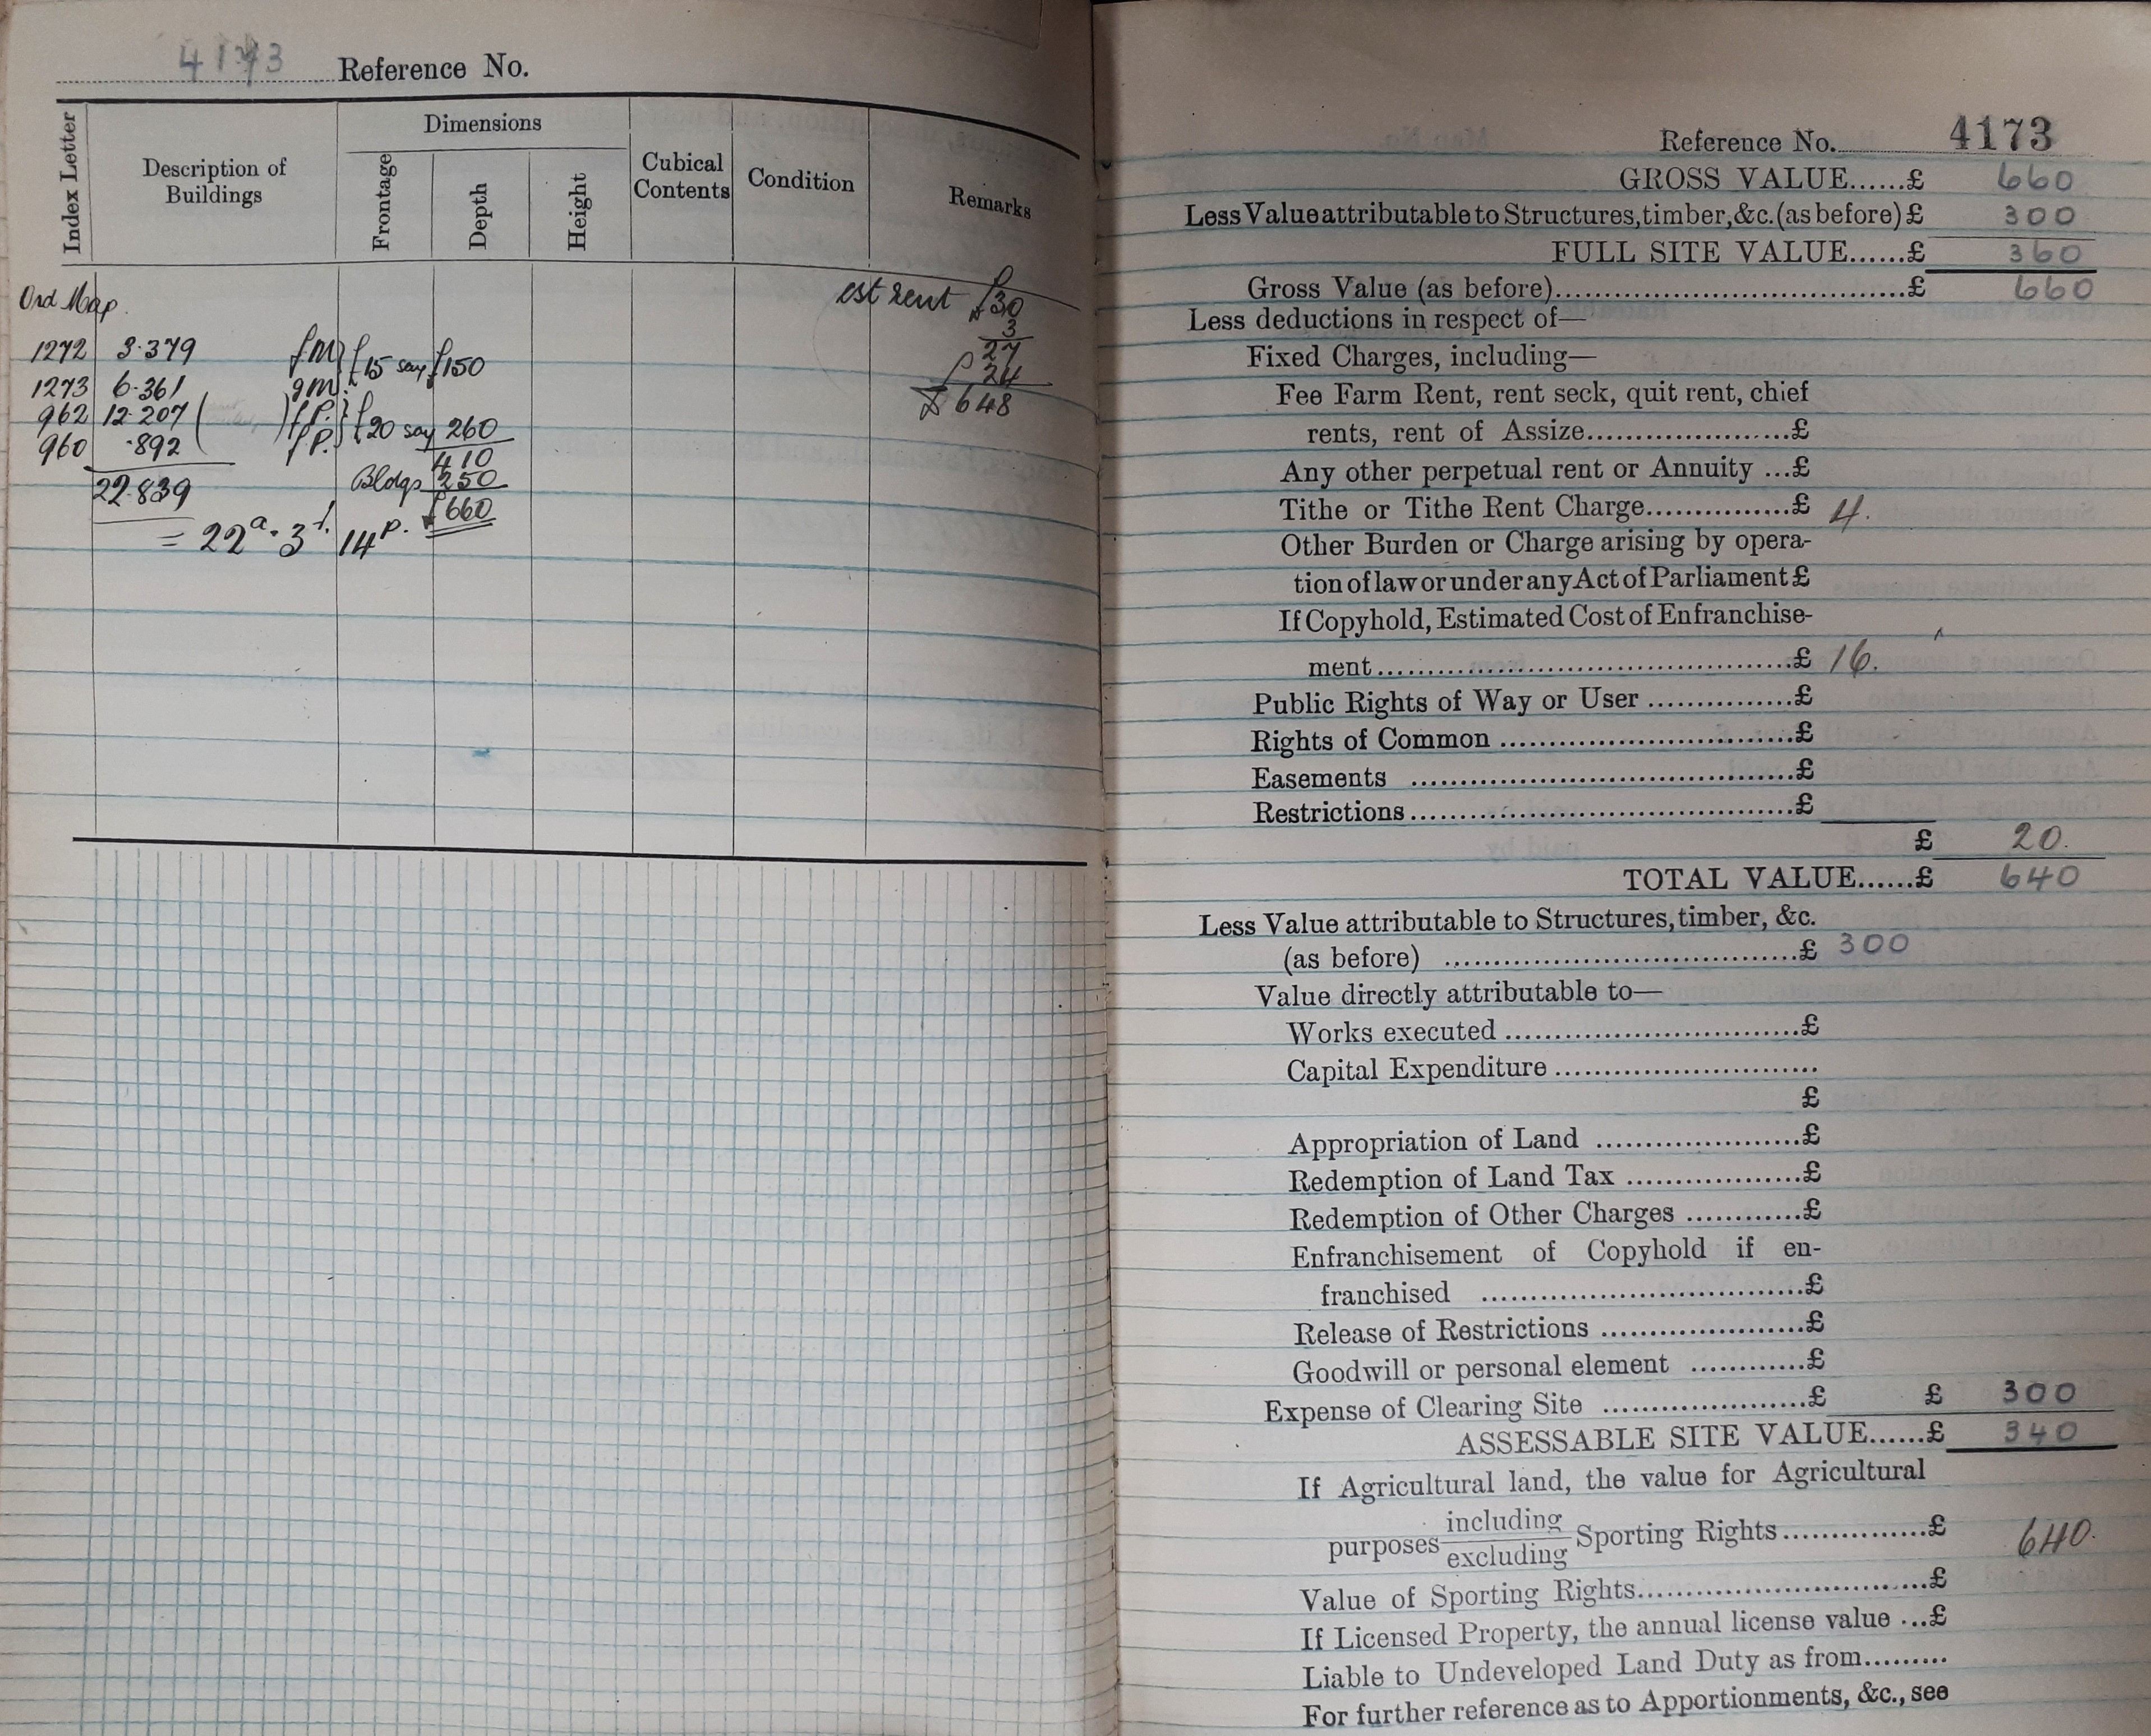 4173 Reference No.
Index Letter
Description of Buildings
Dimensions
Frontage
Depth
Height
Cubical Contents
Condition
Remarks
Ord Map.
est rent £30
3
27
24
£648
1272 3.379 fm } £15 say £150
1273 6.361 gm.
962 12.207 ( ) f.P. } £20 say 260
960 .892 f P.
410
22.839 Bldgs 250
£660
= 22a. 3r. 14p.
Reference No. 4173
GROSS VALUE......£ 660
Less Value attributable to Structures, timber, &c. (as before) £ 300
FULL SITE VALUE......£ 360
Gross Value (as before)..........£ 660
Less deductions in respect of—
Fixed Charges, including—
Fee Farm Rent, rent seck, quit rent, chief
rents, rent of Assize..........£
Any other perpetual rent or Annuity ...£
Tithe or Tithe Rent Charge..........£ 4.
Other Burden or Charge arising by opera-
tion of law or under any Act of Parliament £
If Copyhold, Estimated Cost of Enfranchise-
ment..........£ 16.
Public Rights of Way or User ..........£
Rights of Common ..........£
Easements ..........£
Restrictions..........£
£ 20.
TOTAL VALUE......£ 640
Less Value attributable to Structures, timber, &c.
(as before) ..........£ 300
Value directly attributable to—
Works executed ..........£
Capital Expenditure ..........
£
Appropriation of Land ..........£
Redemption of Land Tax ..........£
Redemption of Other Charges ..........£
Enfranchisement of Copyhold if en-
franchised ..........£
Release of Restrictions ..........£
Goodwill or personal element ..........£
Expense of Clearing Site ..........£ £ 300
ASSESSABLE SITE VALUE......£ 340
If Agricultural land, the value for Agricultural
purposes including excluding Sporting Rights..........£ 640.
Value of Sporting Rights..........£
If Licensed Property, the annual license value ...£
Liable to Undeveloped Land Duty as from.........
For further reference as to Apportionments, &c., see